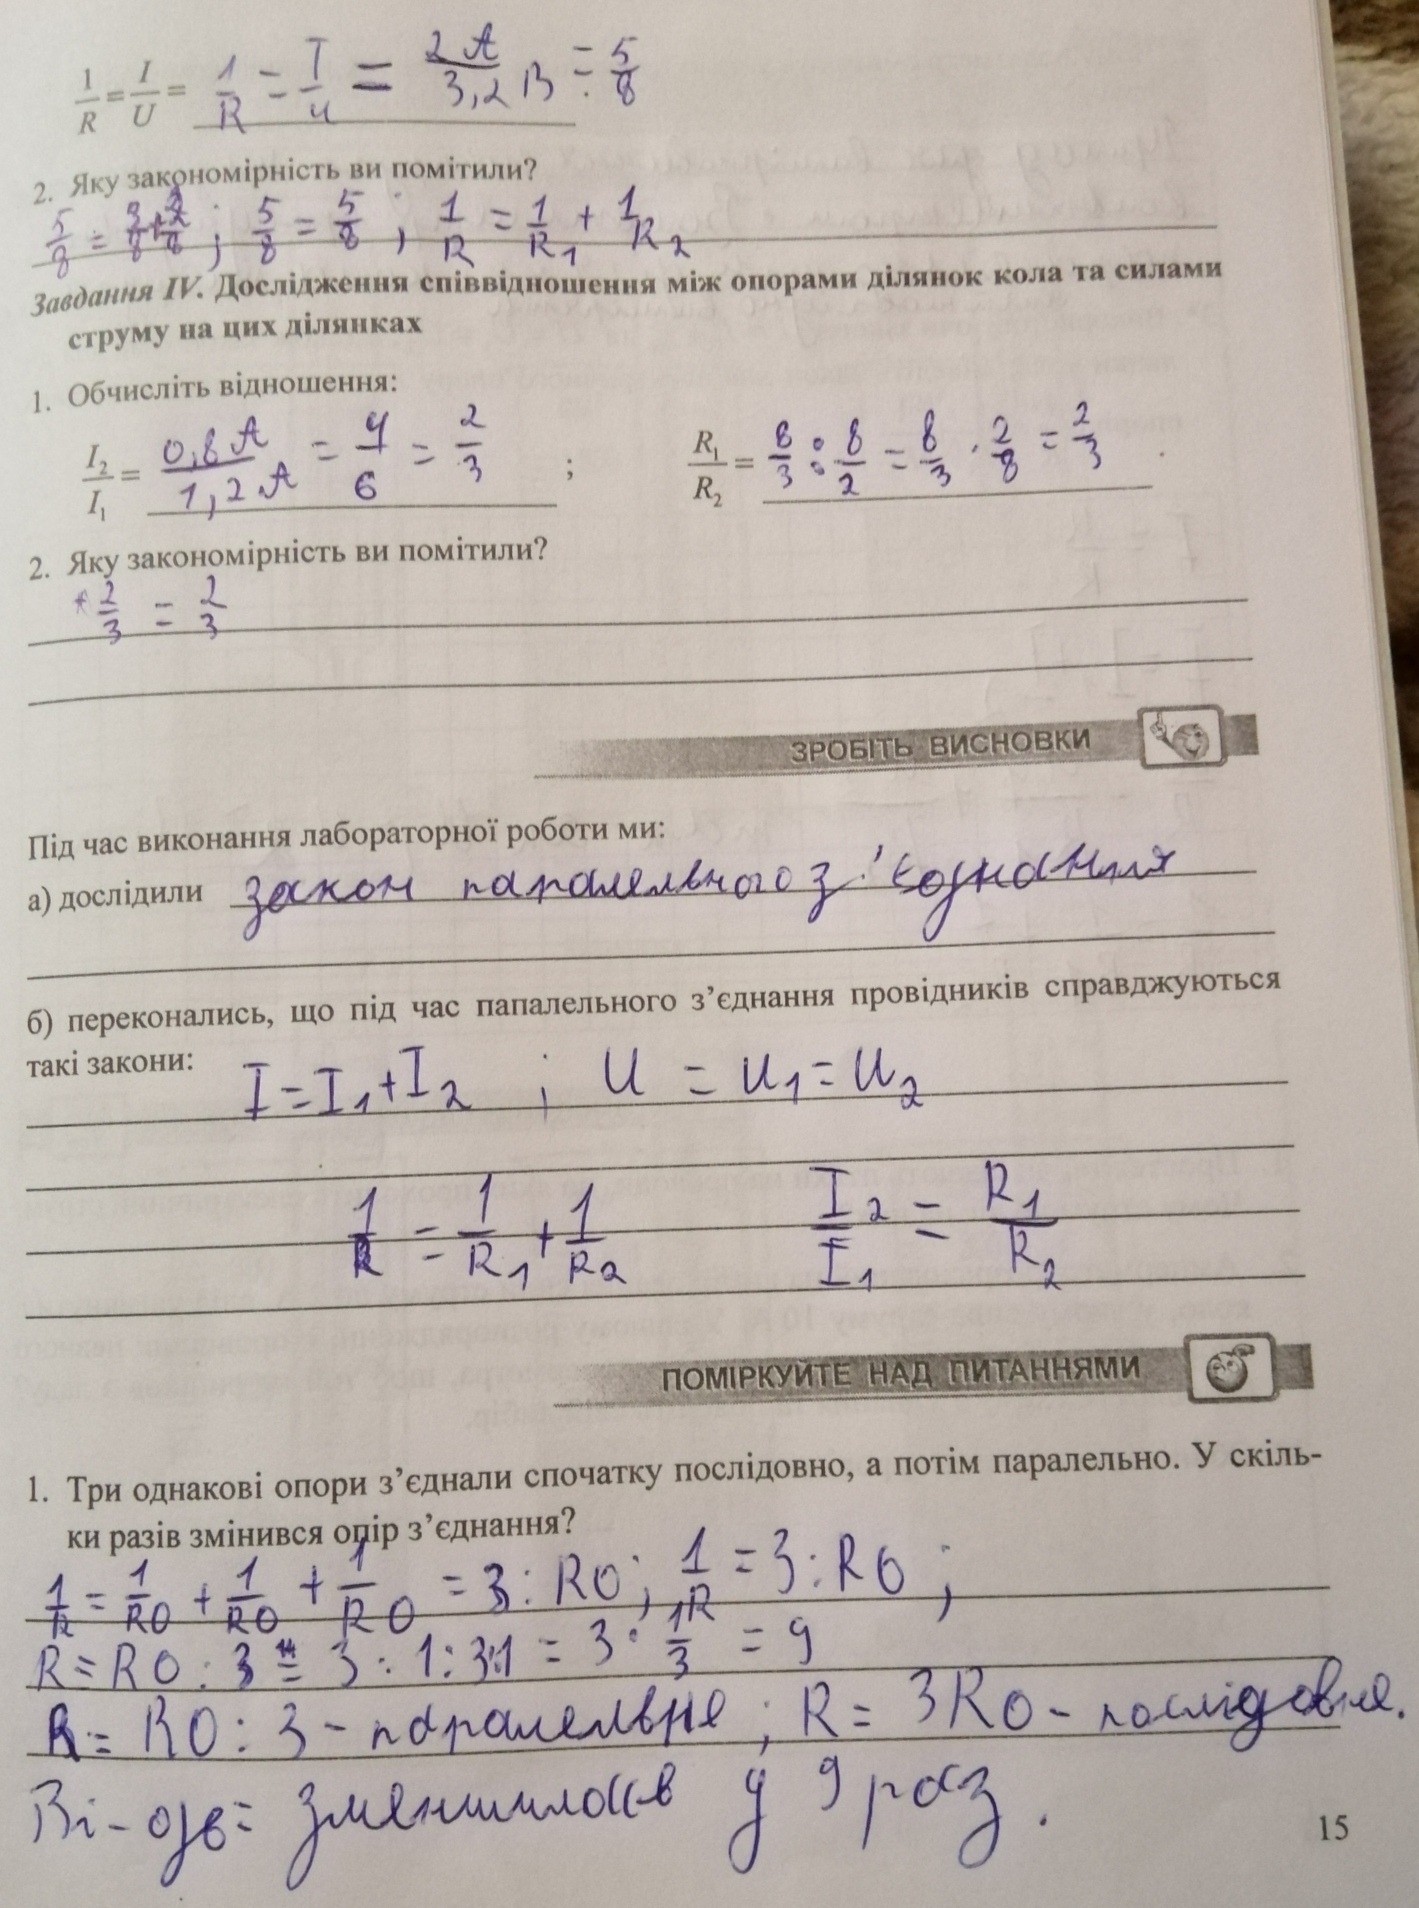 1/R = I/U = 1/R = I/U = 2 А/3,2 В = 5/8
2. Яку закономірність ви помітили?
5/8 = 3/8 + 2/8 ; 5/8 = 5/8 ; 1/R = 1/R₁ + 1/R₂
Завдання IV. Дослідження співвідношення між опорами ділянок кола та силами
струму на цих ділянках
1. Обчисліть відношення:
I₂/I₁ = 0,8 А/1,2 А = 4/6 = 2/3 ; R₁/R₂ = 8/3 : 8/2 = 8/3 · 2/8 = 2/3 .
2. Яку закономірність ви помітили?
2/3 = 2/3
ЗРОБІТЬ ВИСНОВКИ
Під час виконання лабораторної роботи ми:
а) дослідили закон паралельного з'єднання
б) переконались, що під час папалельного з’єднання провідників справджуються
такі закони: I = I₁ + I₂ ; U = U₁ = U₂
1/R = 1/R₁ + 1/R₂ I₂/I₁ = R₁/R₂
ПОМІРКУЙТЕ НАД ПИТАННЯМИ
1. Три однакові опори з’єднали спочатку послідовно, а потім паралельно. У скіль-
ки разів змінився опір з’єднання?
1/R = 1/R0 + 1/R0 + 1/R0 = 3 : R0 ; 1/R = 3 : R0 ;
R = R0 : 3 = 3 : 1 : 3:1 = 3 : 1/3 = 9
R = R0 : 3 - паралельне ; R = 3R0 - послідовне.
Ві-дь = зменшилась у 9 раз .
15